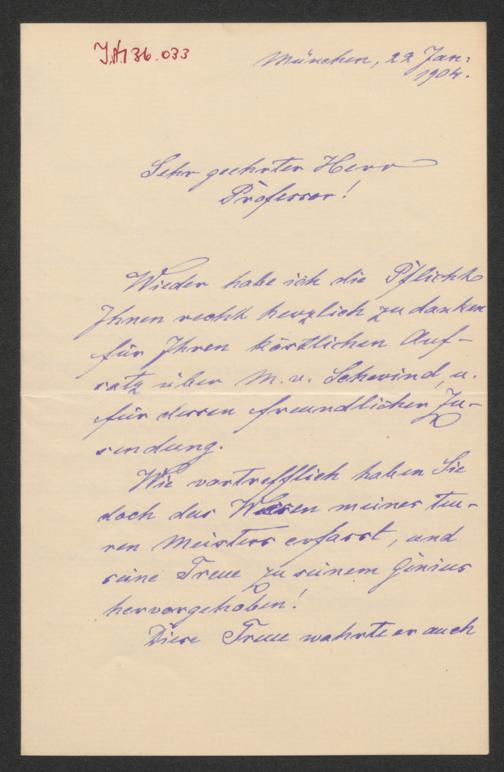 I.N. 136.033
München, 22 Jan:
1904.
Sehr geehrter Herr
Professor!
Wieder habe ich die Pflicht
Ihnen recht herzlich zu danken
für Ihren köstlichen Auf-
satz über M. v. Schwind, u.
für dessen freundlichen Zu-
sendung.
Wie vortrefflich haben Sie
doch das Wesen meines teu-
ren Meisters erfasst, und
seine Treue zu seinem Genius
hervorgehoben!
Diese Treue wahrte er auch